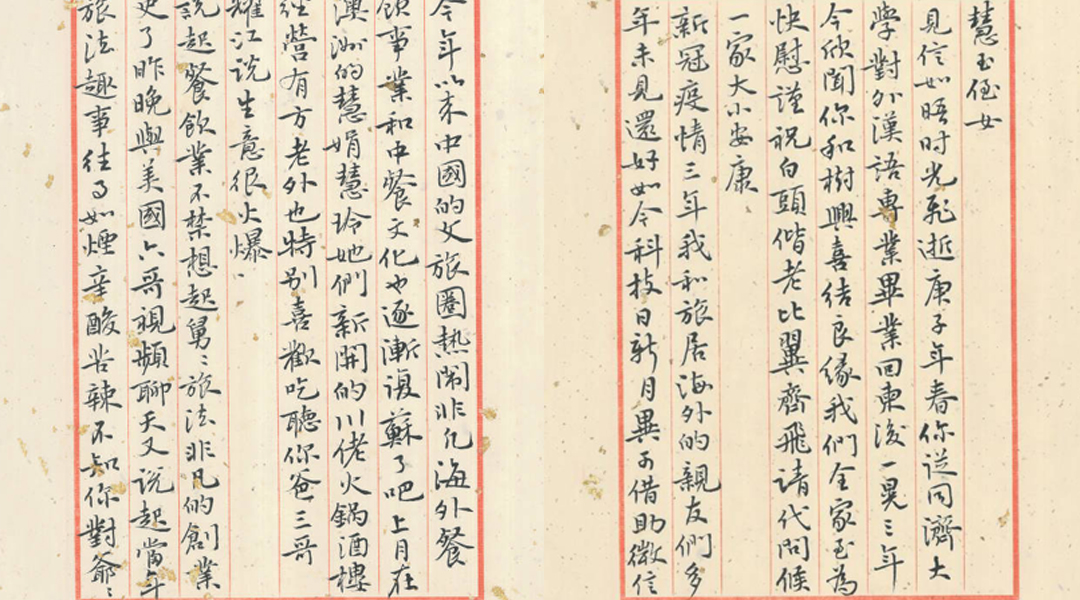 慧玉侄女
見信如晤时光飛逝庚子年春你従同濟大
學對外漢語専業畢業回柬後一晃三年
今欣聞你和樹興喜结良緣我們全家至為
快慰謹祝白頭偕老比翼齊飛請代問候
一家大小安康
新冠疫情三年我和旅居海外的親友們多
年未見還好如今科技日新月異可借助微信
今年以来中國的文旅圈熱鬧非凡海外餐
飲事業和中餐文化也逐漸復蘇了吧上月在
澳洲的慧娟慧玲她們新開的川佬火鍋酒樓
經营有方老外也特别喜歡吃聽你爸三哥
耀江说生意很火爆
說起餐飲業不禁想起舅〻旅法非凡的創業
史了昨晚與美國六哥視頻聊天又说起當年
旅法趣事往事如煙辛酸苦辣不知你對爺〻